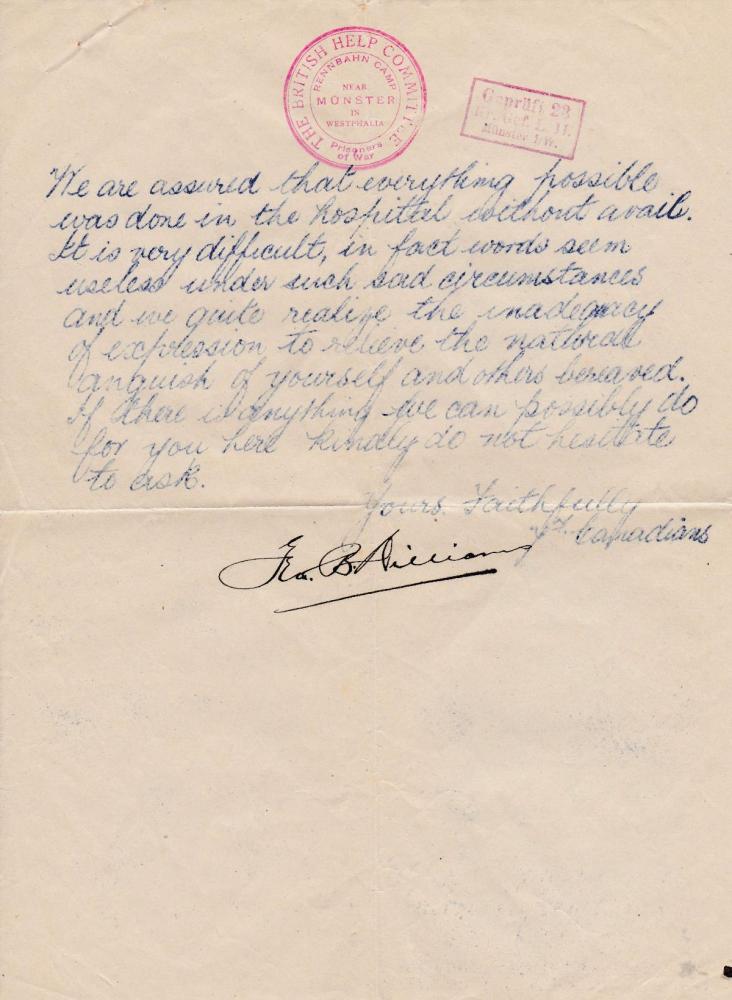 THE BRITISH HELP COMMITTEE
RENNBAHN CAMP
NEAR
MÜNSTER
IN
WESTPHALIA
Prisoners
of War
Geprüft 23
Münster i/W.
We are assured that everything possible
was done in the hospittal without avail.
It is very difficult, in fact words seem
useless under such sad circumstances
and we quite realize the inadeqacy
of expression to relieve the natural
anguish of yourself and others bereaved.
If there is anything we can possibly do
for you here kindly do not hesitate
to ask.
Yours Faithfully
Canadians
B. Williams